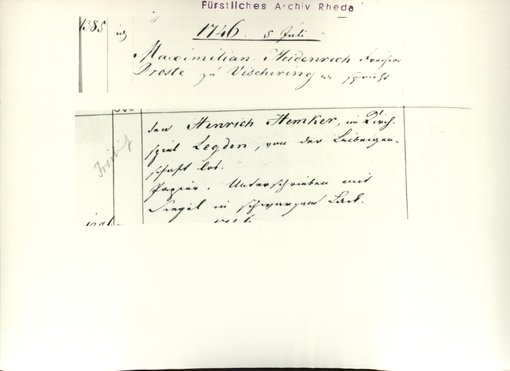 Fürstliches Archiv Rheda
1385
1746. 5 Juli.
Maximilian Heidenrich Freiherr
Droste zu Vischering spricht
den Henrich Hemker, im Kirch-
spiel Legden, von der Leibeigen-
schaft los.
Papier. Unterschrieben mit
Siegel in schwarzem Lack.